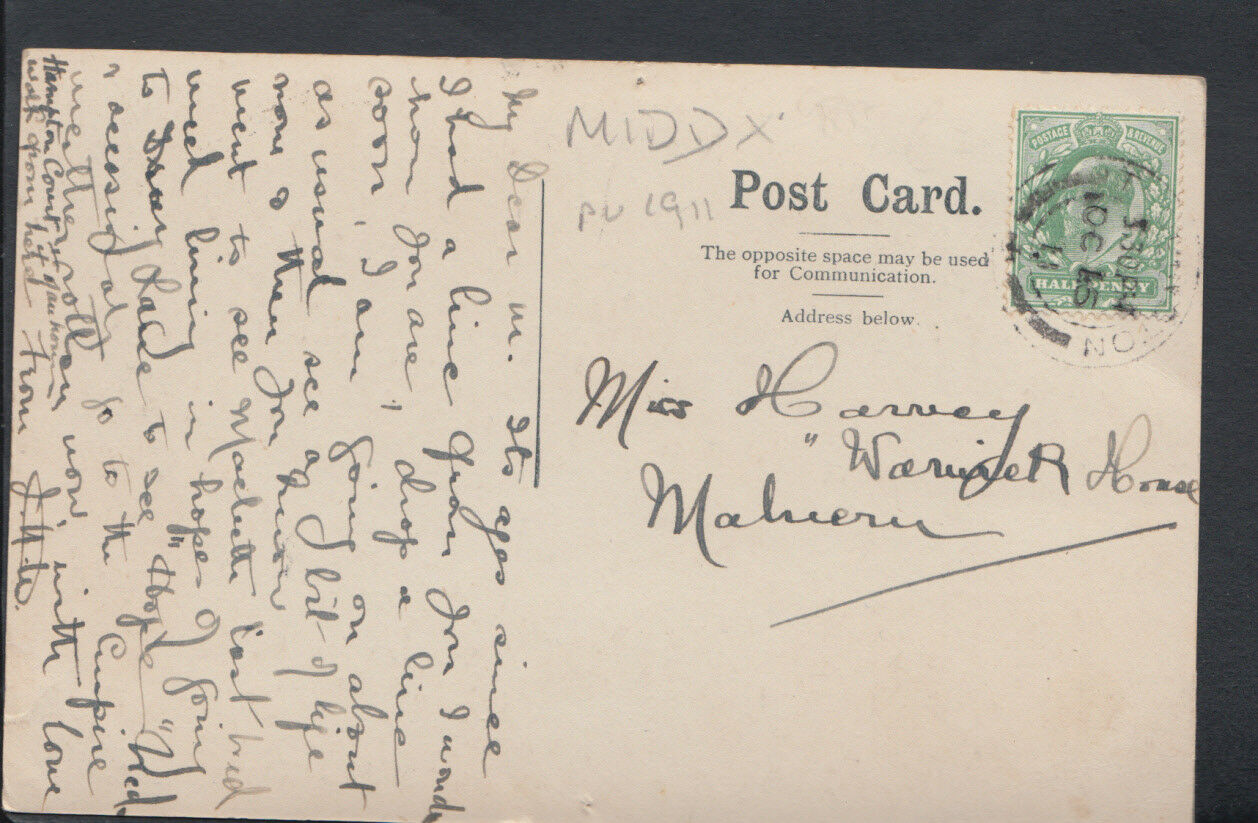 MIDDX
PU 1911
Post Card.
The opposite space may be used
for Communication.
Address below.
POSTAGE & REVENUE
HALFPENNY
1.30 PM
OC 15
11
Miss Harvey
"Warwick House
Malvern
My Dear M. Its ages since
I had a line from you I wonder
how you are, drop a line
soon, I am going on about
as usual see a bit of life
now & then you know
went to see Macbeth last wed
week living in hopes of going
to Drury Lane to see "Hope" Wed
& accessing at go to the Empire
me the now with love
Hampton Court if you know
walk from here
from